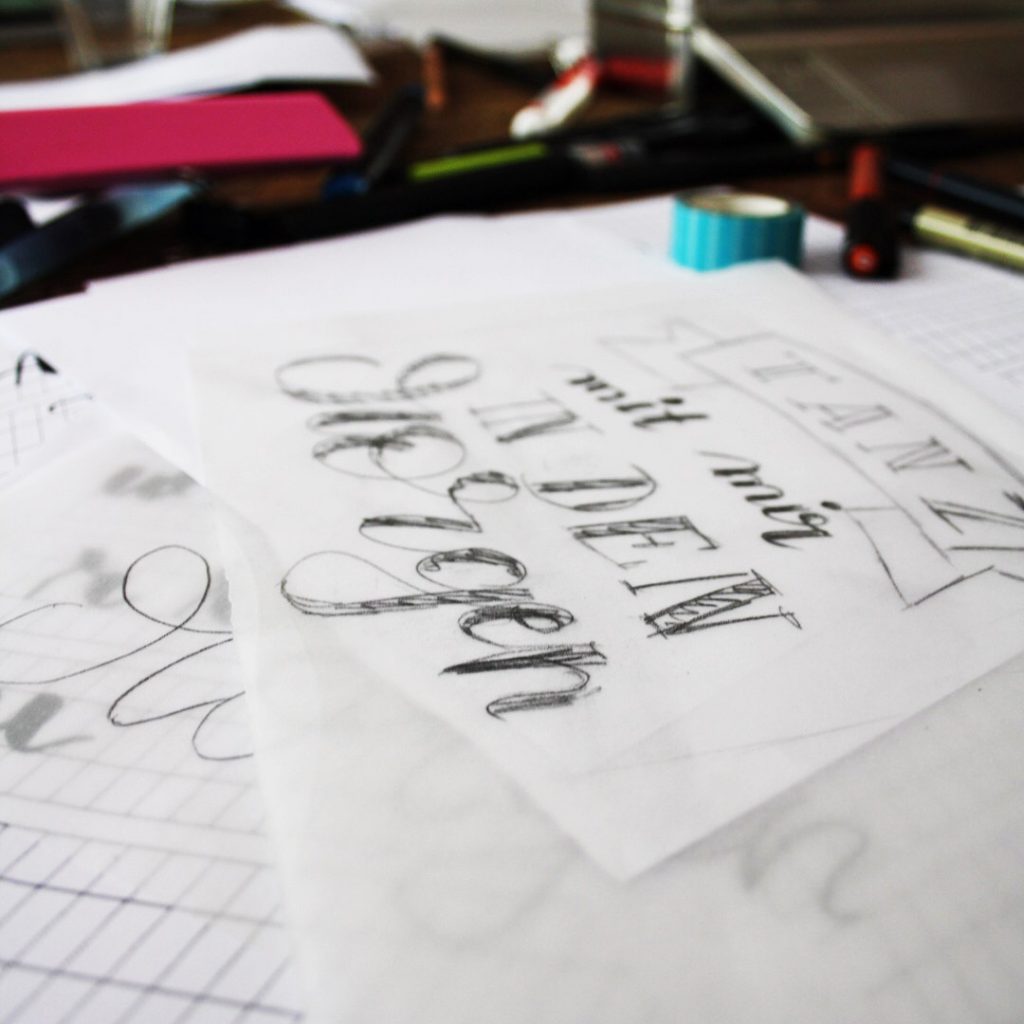 TANZ
mit mir
IN DEN
Morgen